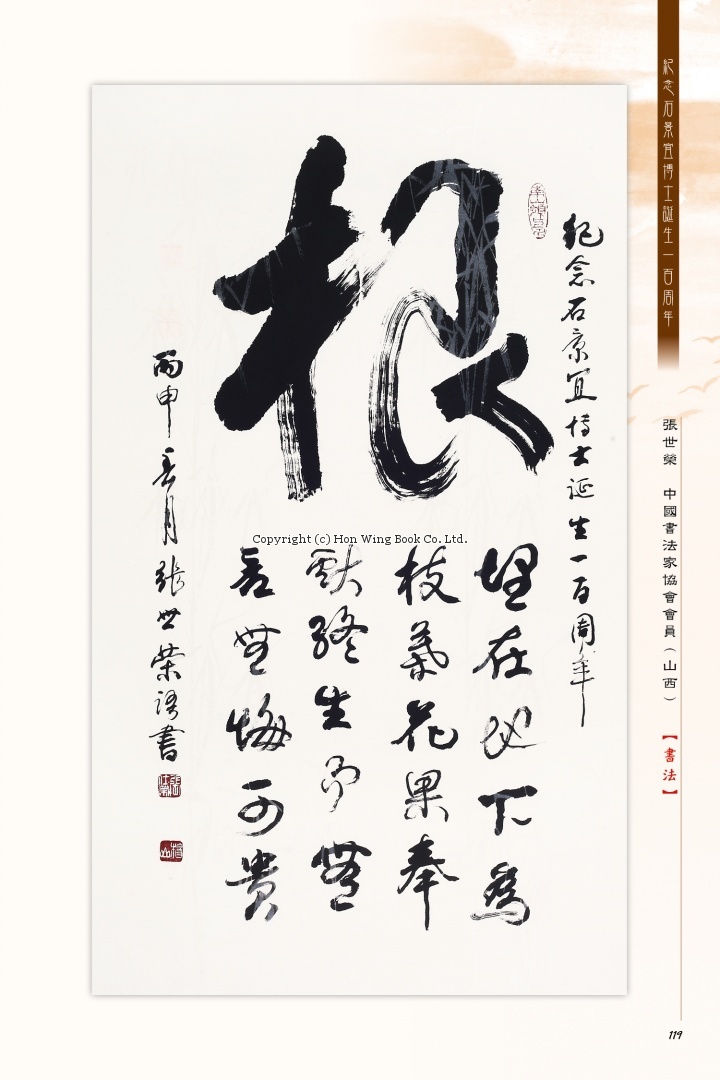 紀念石景宜博士誕生一百周年
張世榮 中國書法家協會會員（山西）
【書法】
紀念石景宜博士诞生一百周年
根
埋在地下為
枝葉花果奉
獻終生而無
言無悔可貴
丙申春月張世榮語書
Copyright (c) Hon Wing Book Co. Ltd.
119